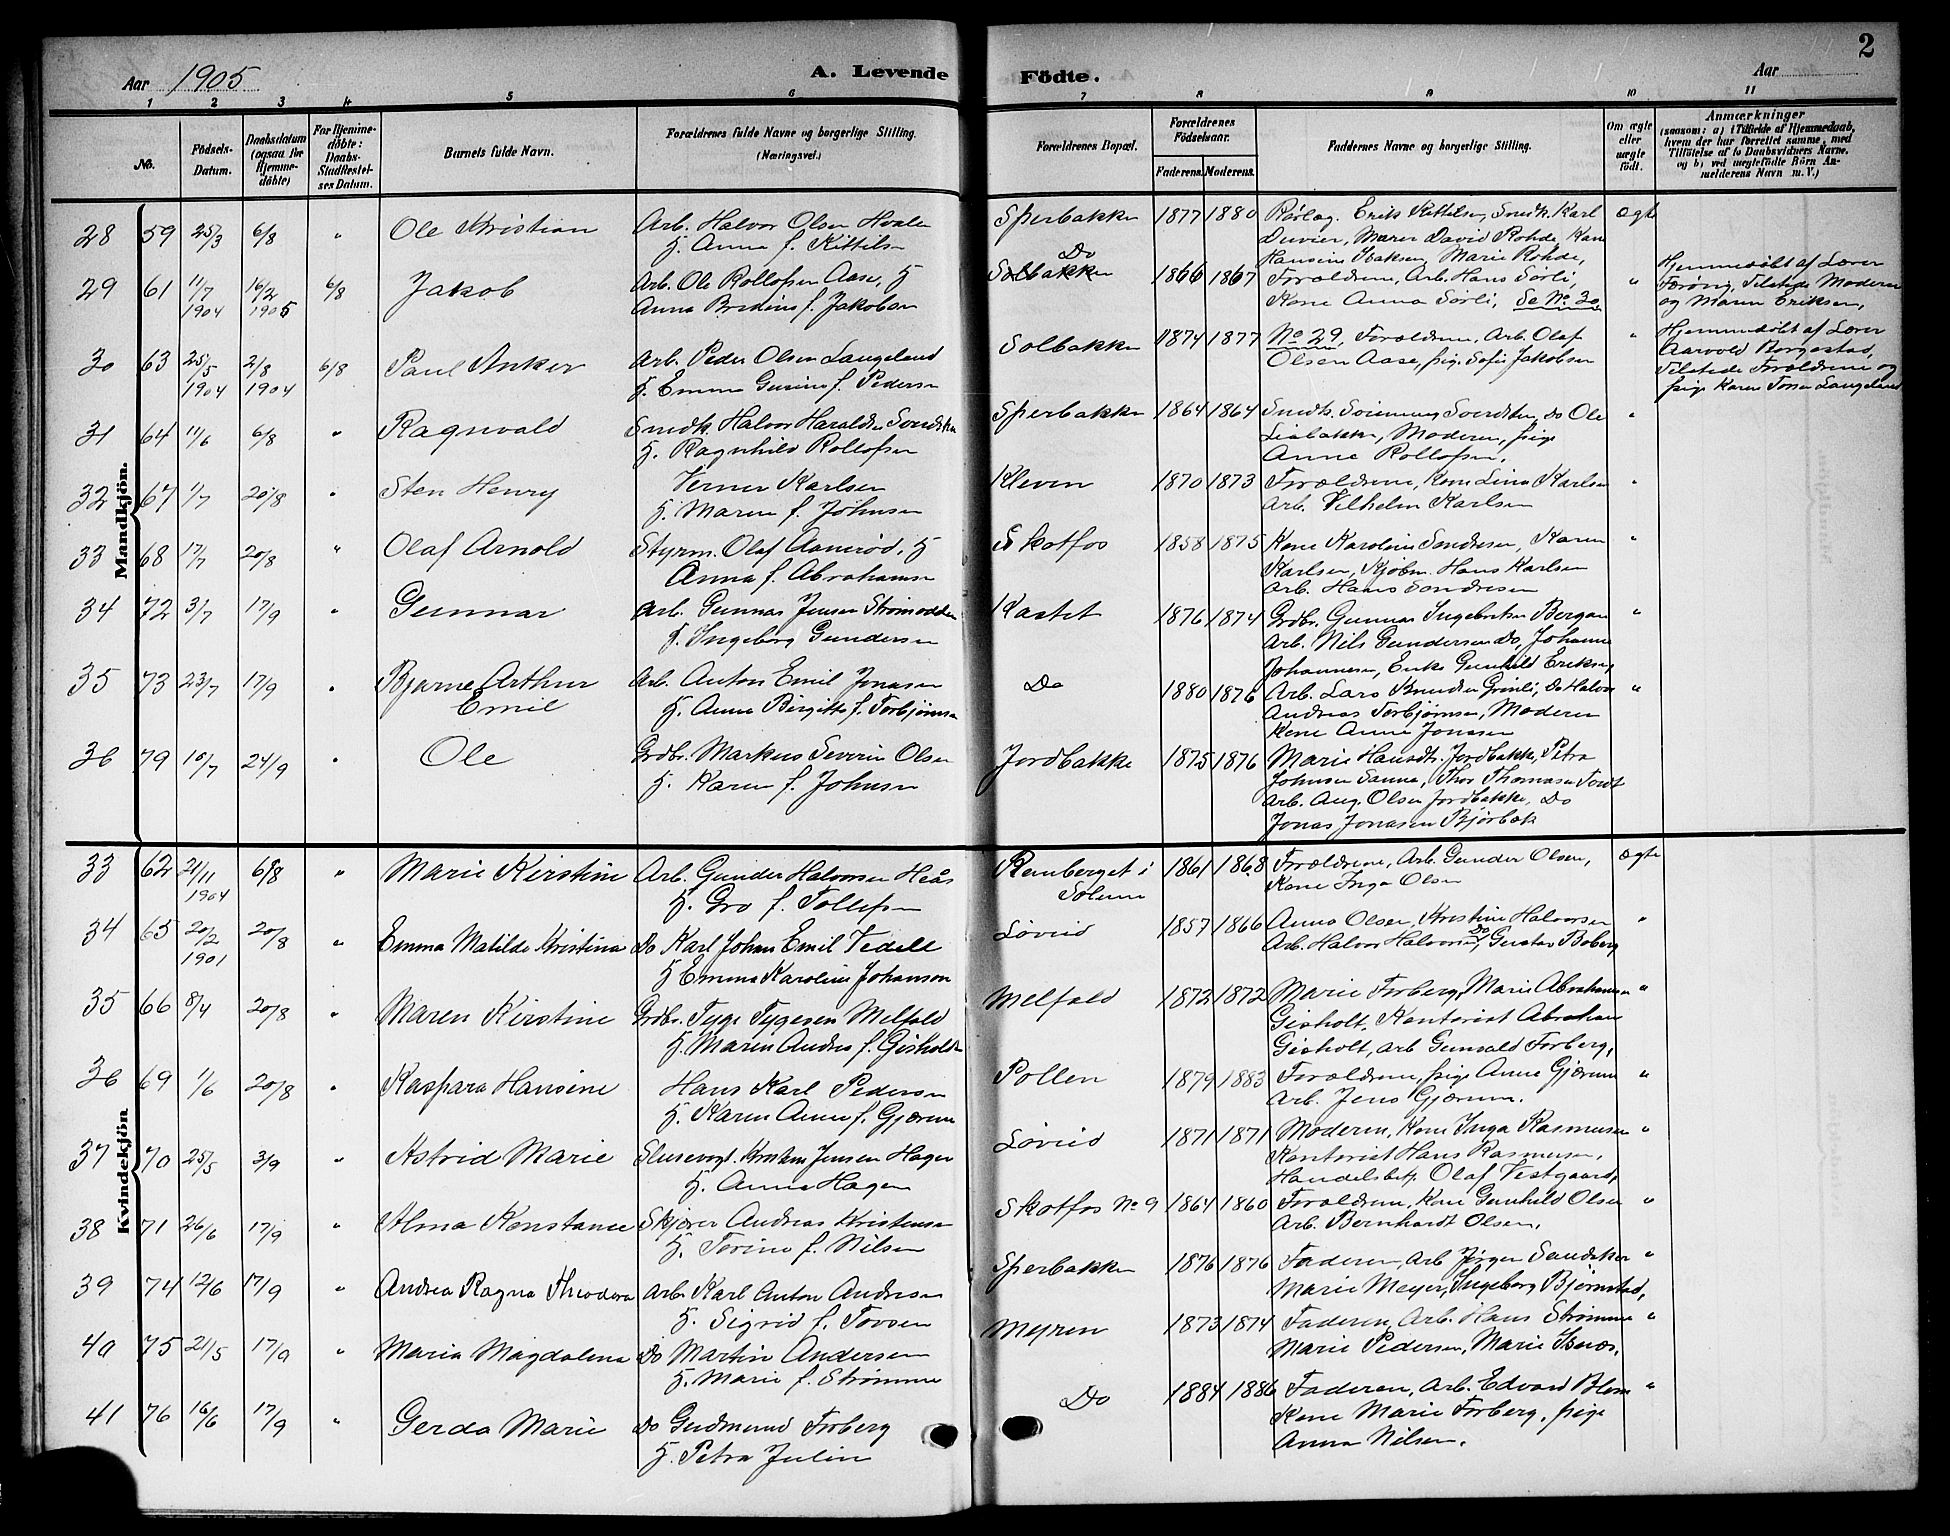 Aar 1905
A. Levende Födte.
Aar
2
1 2 3 4 5 6 7 8 9 10 11
No.
Födsels-Datum.
Daabsdatum (ogsaa for Hjemme-döbte)
For Hjemme-döbte: Daabs-Stadfæstel-ses Datum.
Barnets fulde Navn.
Forældrenes fulde Navne og borgerlige Stilling. (Næringsvei.)
Forældrenes Bopæl.
Forældrenes Födselsaar.
Faderens. Moderens.
Faddernes Navne og borgerlige Stilling.
Om ægte eller uægte födt.
Anmærkninger
(saasom: a) i Tilfælde af Hjemmedaab, hvem der har forrettet samme, med Tilföielse af to Daabsvidners Navne. og b) ved uægtefödte Börn Anmelderens Navn m. V.)
Mandkjön.
28 59 25/3 6/8 " Ole Kristian Arb. Halvor Olsen Hvale Sperbakke 1877 1880 Rörlæg. Erik Kittelsen, Smedk. Karl ægte
H. Anna f. Kittilse Duvier, Maren David Rohde Kone
Hansine Isaksen, Marie Rohde,
29 61 11/7 1904 16/2 1905 6/8 Jakob Arb. Ole Rollofsen Aase, H Do Solbakke 1866 1867 Forældrene, Arb. Hans Sörli, " Hjemmedöbt af Lærer
Anna Brekine f. Jakobsen Kone Anna Sörli, Se No 30 Færöng, Tilstede Moderen
og Maren Eriksen,
30 63 25/5 1904 2/8 1904 6/8 Paul Anker Arb. Peder Olsen Langeland Solbakke 1874 1877 No 29, Forældrene, Arb. Olaf " Hjemmedöbt af Lærer
H. Emma Gurine f. Pederse Olsen Aase, pige Sofie Jakobsen Aarvold Borgestad,
Tilstede Forældrene og
pige Karen Torsen Langeland
31 64 11/6 6/8 " Ragnvald Smedk. Halvor Haralds. Sondsken Sperbakke 1864 1864 Smedk. Soinung Sverdsken, Do Ole "
H. Ragnhild Rollofsen Liabakke, Moderen, pige
Anne Rollofsen.
32 67 1/7 20/8 " Sten Henry Verner Karlsen Kleven 1870 1873 Forældrene, Kone Lina Karlsen "
H. Maren f. Johnsen Arb. Vilhelm Karlsen
33 68 17/7 20/8 " Olaf Arnold Styrm. Olaf Aameröd, H Skotfos 1858 1875 Kone Karoline Sondresen, Karen "
Anna f. Abrahamse Karlsen, Kjöbm. Hans Karlsen
Arb. Hans Sondresen
34 72 3/7 17/9 " Gunnar Arb. Gunnar Jensen Strömodden Kastet 1876 1874 Grdbr. Gunnar Ingebretsen Bergan "
H. Ingeborg Gundersen Arb. Nils Gundersen Do, Johanne
Johannesen, Enke Gunhild Eriksen,
35 73 23/7 17/9 " Bjarne Arthur Emil Arb. Anton Emil Jonasen Do 1880 1876 Arb. Lars Knudsen Grinli, Do Halvor "
H. Anne Birgitte f. Torbjörnsen Andreas Torbjörnsen, Moderen
Kone Anne Jonasen
36 79 10/7 24/9 " Ole Grdbr. Markus Severin Olsen Jordbakke 1875 1876 Marie Hansdtr. Jordbakke, Petra
H. Karen f. Johnsen Johnsen Sanna, Thor Thomasen Tordt
Arb. Aug. Olsen Jordbakke, Do
Jonas Jonasen Bjørbæk
Kvindekjön
33 62 21/11 1904 6/8 " Marie Kirstine Arb. Gunder Halvorsen Heås Remberget i Solum 1861 1868 Forældrene, Arb. Gunder Olsen, ægte
H. Gro f. Tollefsen Kone Inga Olsen
34 65 20/2 1901 20/8 " Emma Matilde Kristina Do Karl Johan Emil Vedell Løveid 1857 1866 Anna Olsen, Kristine Halvorsen "
H Emma Karoline Johanson Arb. Halvor Halvorsen, Do Gustav Boberg
35 66 8/4 20/8 " Maren Kirstine Grdbr. Tyge Tygesen Melfald Melfald 1872 1872 Marie Forberg, Marie Abrahamsen "
H. Maren Andrea f. Gisholdt Gisholt, Kontorist Abraham
Gisholt, Arb Gunvald Forberg,
36 69 1/6 20/8 " Kaspara Hansine Hans Karl Pedersen Pollen 1879 1883 Forældrene, pige Anne Gjærum "
H. Karen Anne f. Gjærum Arb. Jens Gjærum.
37 70 25/5 3/9 " Astrid Marie Slusevogt. Kristen Jensen Hagen Løveid 1871 1871 Moderen, Kone Inga Rasmusen "
H. Anna Hagen Kontorist Hans Rasmusen,
Handelsbetj. Olaf Vestgaard,
38 71 26/6 17/9 " Alma Konstance Skjærer Andreas Kristensen Skotfos No 9 1864 1860 Forældrene, Kone Gunhild Olsen "
H. Torine f. Nilsen Arb. Bernhardt Olsen,
39 74 12/6 17/9 " Andrea Ragna Theodora Arb. Karl Anton Andresen Sperbakken 1876 1876 Faderen, Arb Jörgen Sandaker "
H. Sigrid f. Tovsen Marie Meyer, Ingeborg Bjørnstad,
40 75 21/5 17/9 " Maria Magdalena Do Martin Andersen Myren 1873 1874 Faderen, Arb. Hans Strömme "
H. Marie f. Strömme Marie Pedersen, Marie
41 76 16/6 17/9 " Gerda Marie Do Gudmund Forberg Do 1884 1886 Faderen, Arb. Edvard Blom "
H. Petra Julin Kone Marie Forberg, pige
Anna Nilsen.